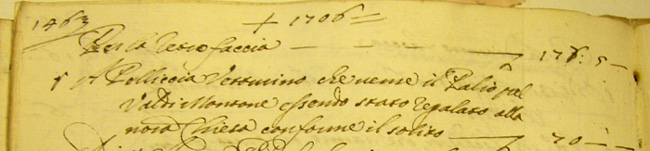 1463 + 1706 =
Per la retro faccia — — — 176: 5 —
A Polliccia Vetturino che venne il Palio pel
Valdimontone essendo stato regalato alla
nora Chiesa conforme il solito — 70 —